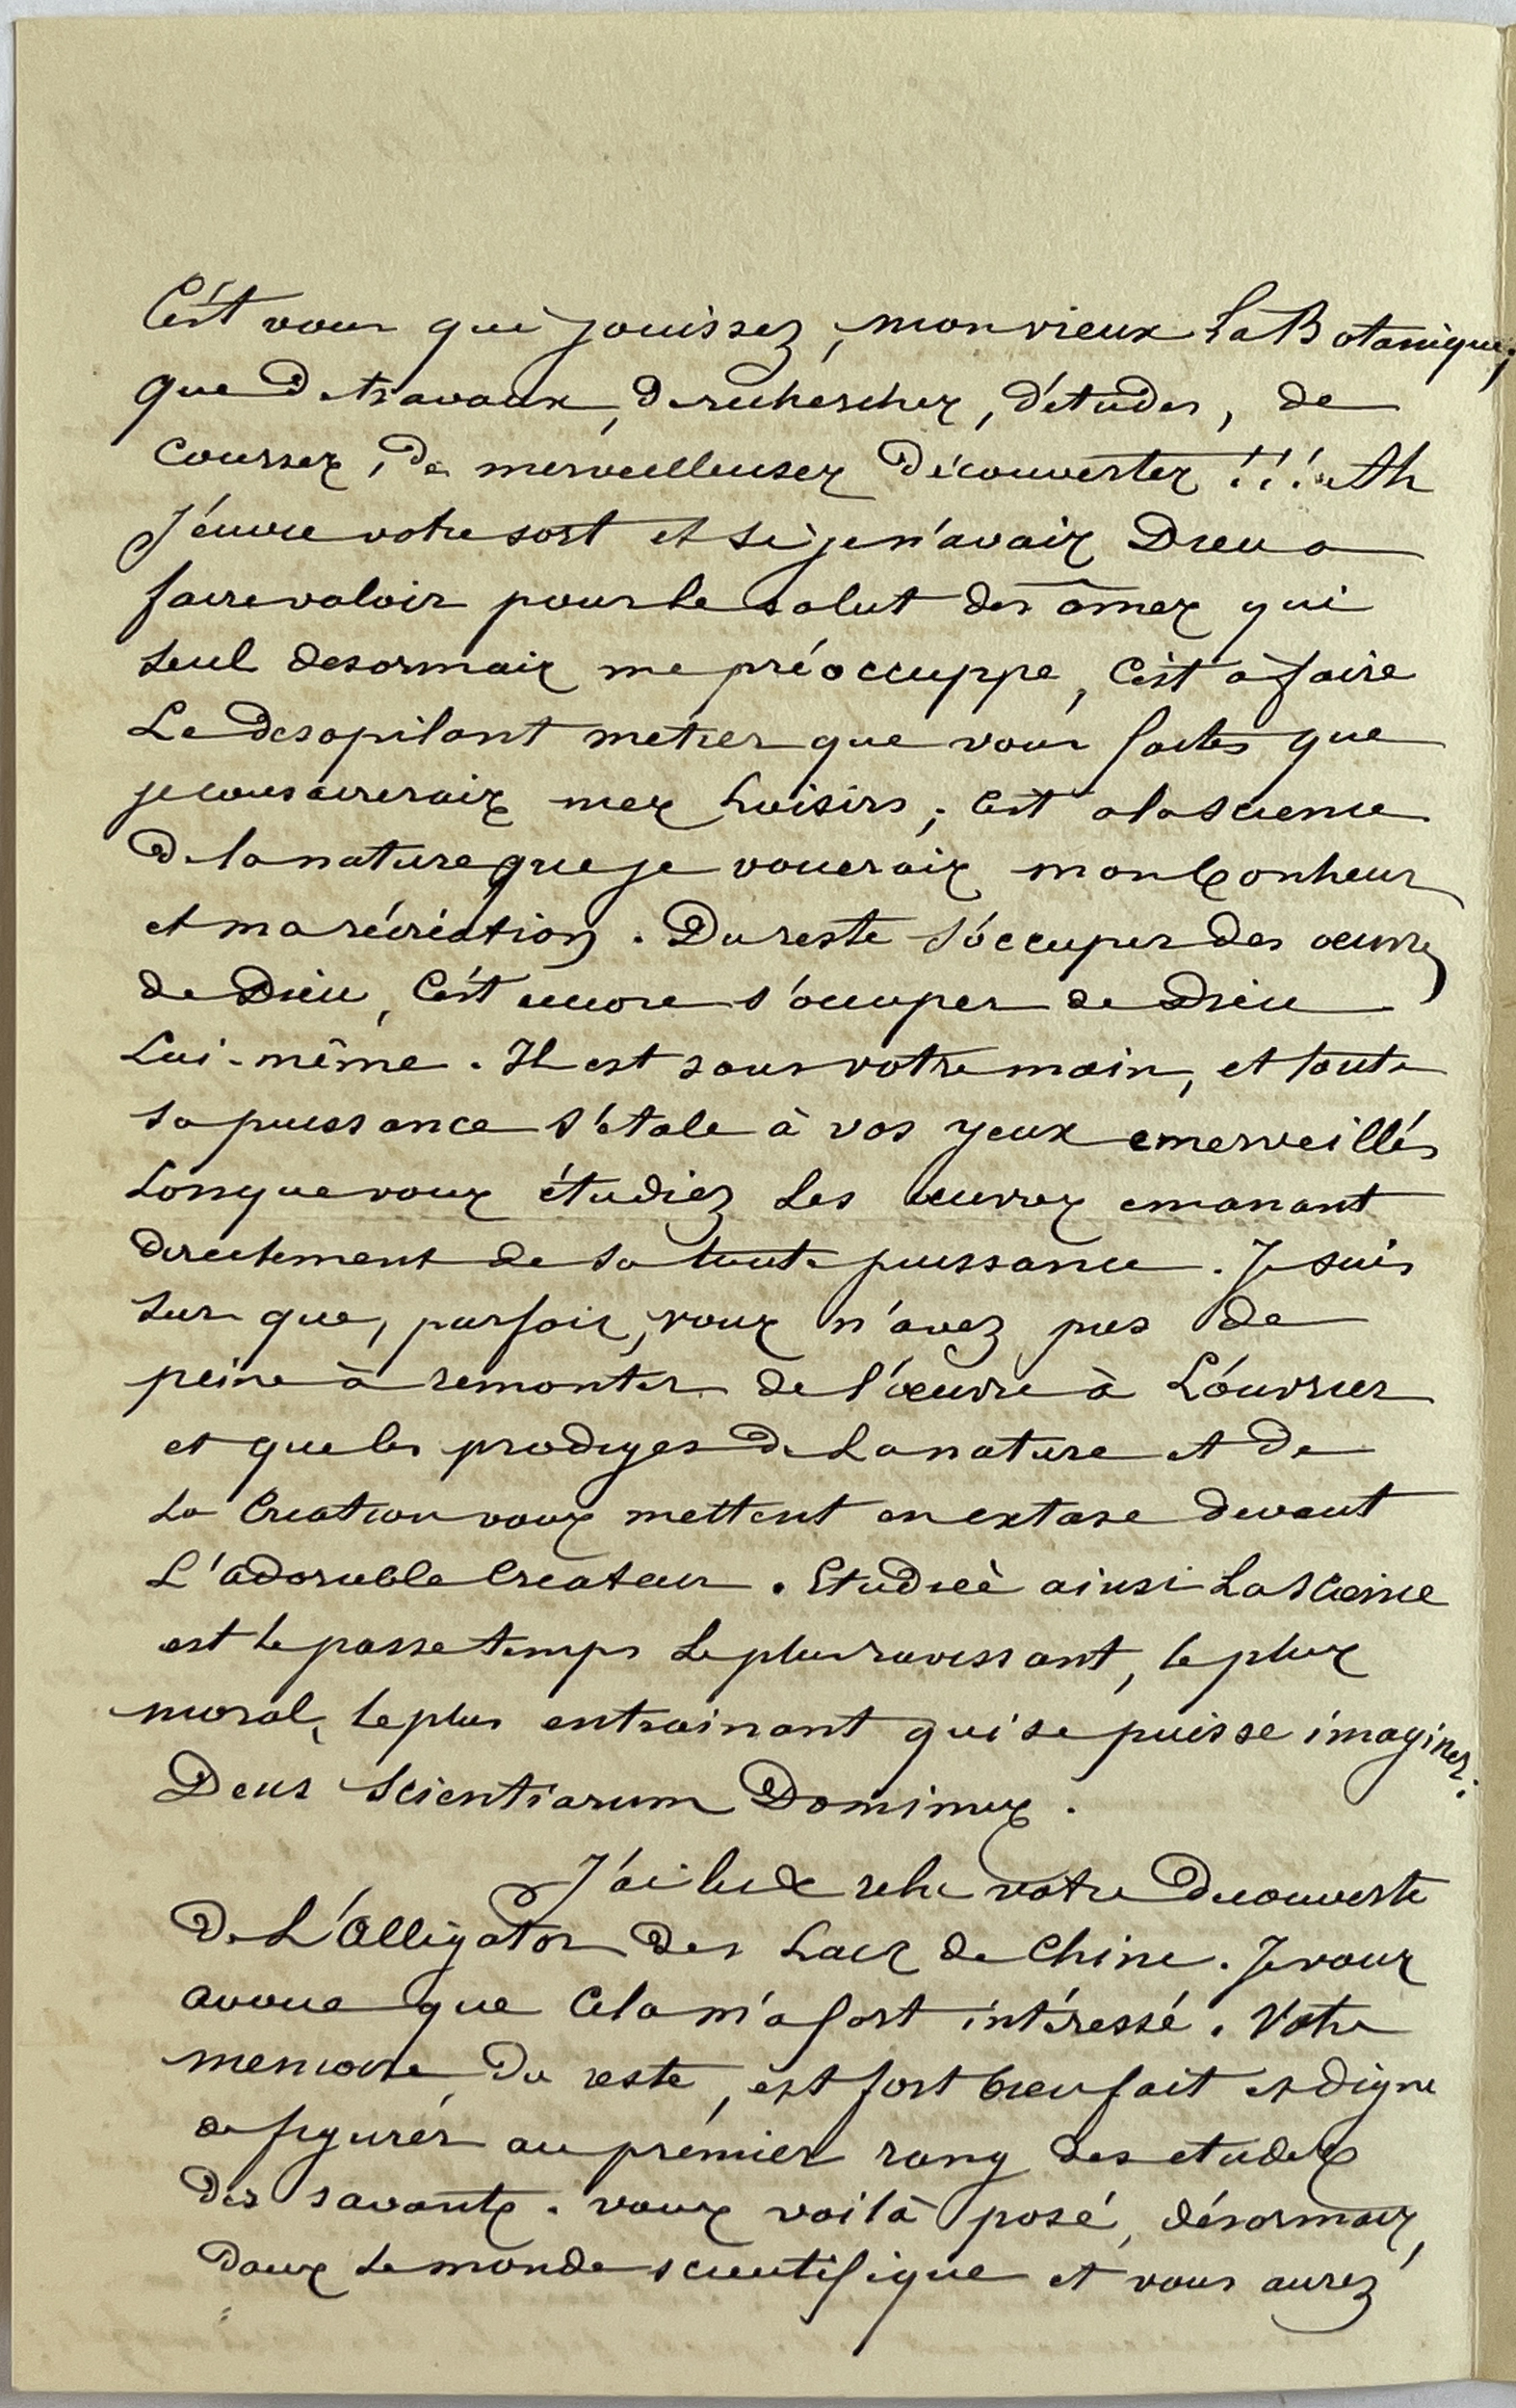 C'est vous qui jouissez, mon vieux La Botanique;
que de travaux, de recherches, d'études, de
courses, de merveilleuses découvertes!!! Ah
J'envie votre sort et si je n'avais Dieu a
faire valoir pour le salut des âmes qui
seul desormais me préoccuppe, C'est à faire
Le desopilant metier que vous faites que
je consacrerais mes Loisirs; C'est a la science
de la nature que je vouerais mon bonheur
et ma récréation. Du reste s'occuper des œuvres
de Dieu, C'est encore s'occuper de Dieu
Lui-même. Il est sous votre main, et toute
sa puissance s'étale à vos yeux emerveillés
Lorsque vous étudiez Les œuvres emanant
directement de sa toute puissance. Je suis
sur que, parfois, vous n'avez pas de
peine à remonter de l'œuvre à L'ouvrier
et que les prodiges de La nature et de
La Creation vous mettent en extase devant
L'adorable Createur. Etudiée ainsi La Science
est le passe temps Le plus ravissant, le plus
moral, le plus entrainant qui se puisse imaginer.
Deus Scientiarum Dominus.
J'ai lu & relu votre Decouverte
De L'Alligator des Lacs de Chine. Je vous
avoue que Cela m'a fort intéressé. Votre
memoire, Du reste, est fort bien fait et digne
de figurér au prémier rang des etudes
des savants. vous voilà posé, désormais,
dans Le monde scientifique et vous aurez